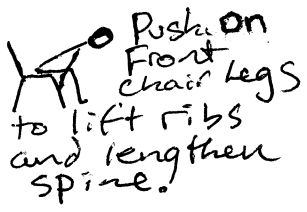 Push on
Front
chair Legs
to lift ribs
and lengthen
spine.